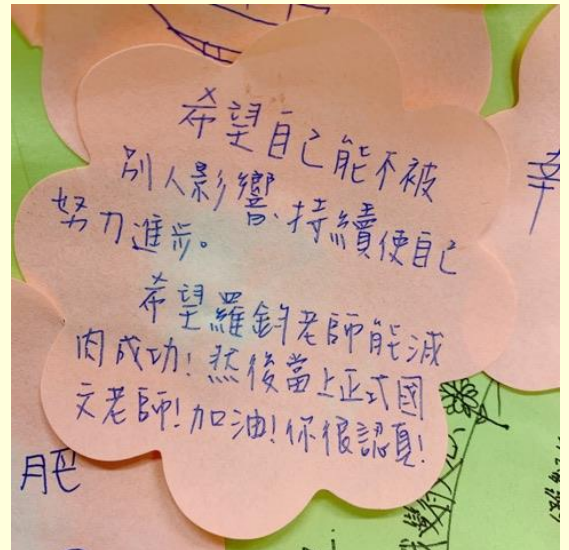 希望自己能不被
別人影響、持續使自己
努力進步。
希望羅鈞老師能減
肉成功!然後當上正式國
文老師!加油!你很認真!
幸
肥